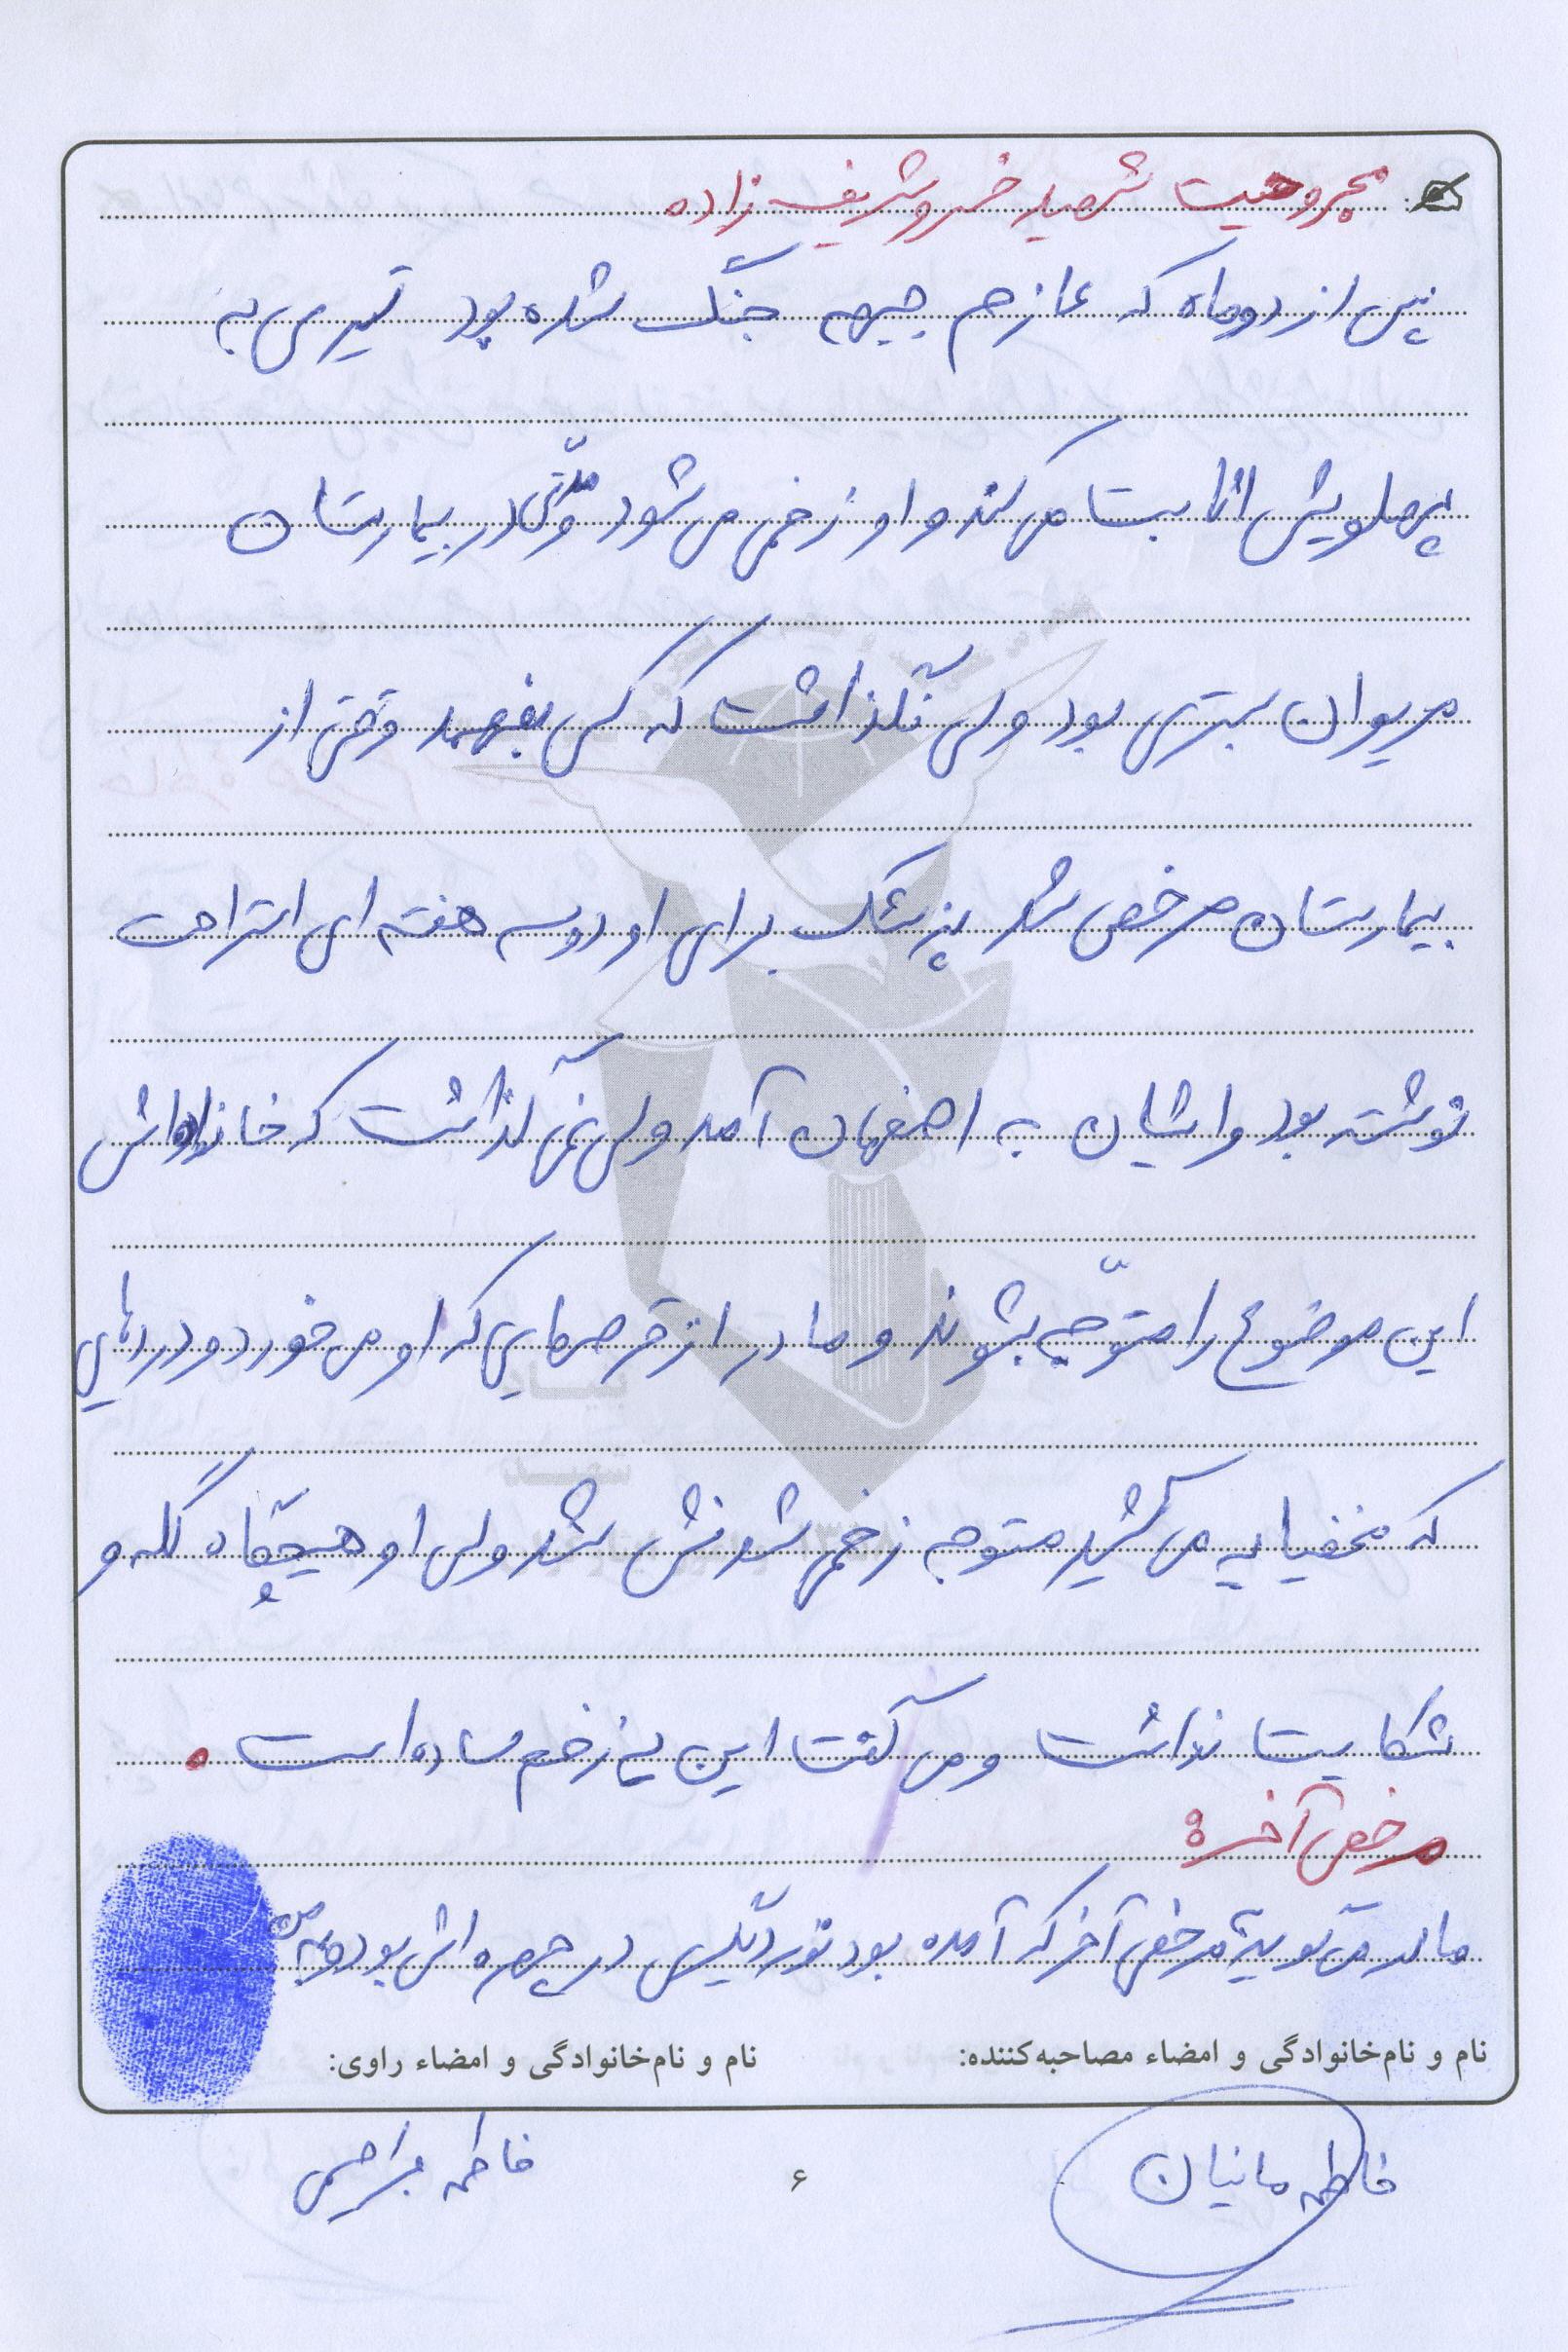 مجروحیت شهید خسرو شریف زاده
پس از دو ماه که عازم جبهه جنگ شده بود تیری به
پهلویش اثابت می‌کند و او زخمی می‌شود مدتی در بیمارستان
مریوان بستری بود ولی نگذاشت که کسی بفهمد وقتی از
بیمارستان مرخص شد پزشک برای او دو سه هفته ای استراحت
نوشته بود و ایشان به اصفهان آمد ولی نمی گذاشت که خانواده اش
این موضوع را متوجّه بشوند و مادر از قرص هایی که او می خورد و دردهایی
که مخفیانه می کشید متوجه زخمی شدنش شد ولی او هیچگاه گله و
شکایت نداشت و می گفت این یه زخم ساده است .
مرخصی آخر :
مادر می گوید مرخصی آخر که آمده بود نور دیگری در چهره اش بود و به من
نام و نام‌خانوادگی و امضاء مصاحبه‌کننده:
نام و نام‌خانوادگی و امضاء راوی:
فاطمه مانیان
فاطمه
۶